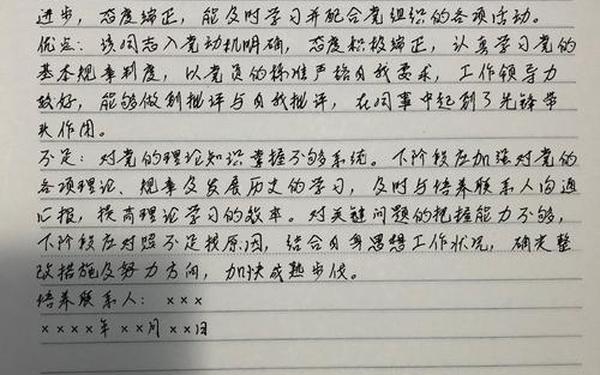 进步，态度端正，能及时学习并配合党组织的各项活动。
优点：该同志入党动机明确，态度积极端正，认真学习党的
基本规章制度，以党员的标准严格自我要求，工作领导力
较好，能够做到批评与自我批评，在同事中起到了先锋带
头作用。
不足：对党的理论知识掌握不够系统。下阶段应加强对党的
各项理论、规章及发展历史的学习，及时与培养联系人沟通
汇报，提高理论学习的效率。对关键问题的把握能力不够，
下阶段应对照不足找原因，结合自身思想工作状况，确定整
改措施及努力方向，加快成熟步伐。
培养联系人：×××
××××年××月××日